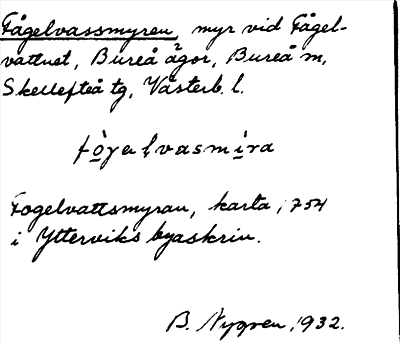 Fågelvassmyren, myr vid Fågel-
vattnet, Bureå ägor, Bureå m,
Skellefteå tg, Västerb. l.
fògəlvasmìra
Fogelvattsmyran, karta, 1754
i Ytterviks byaskrin.
B. Nygren, 1932.